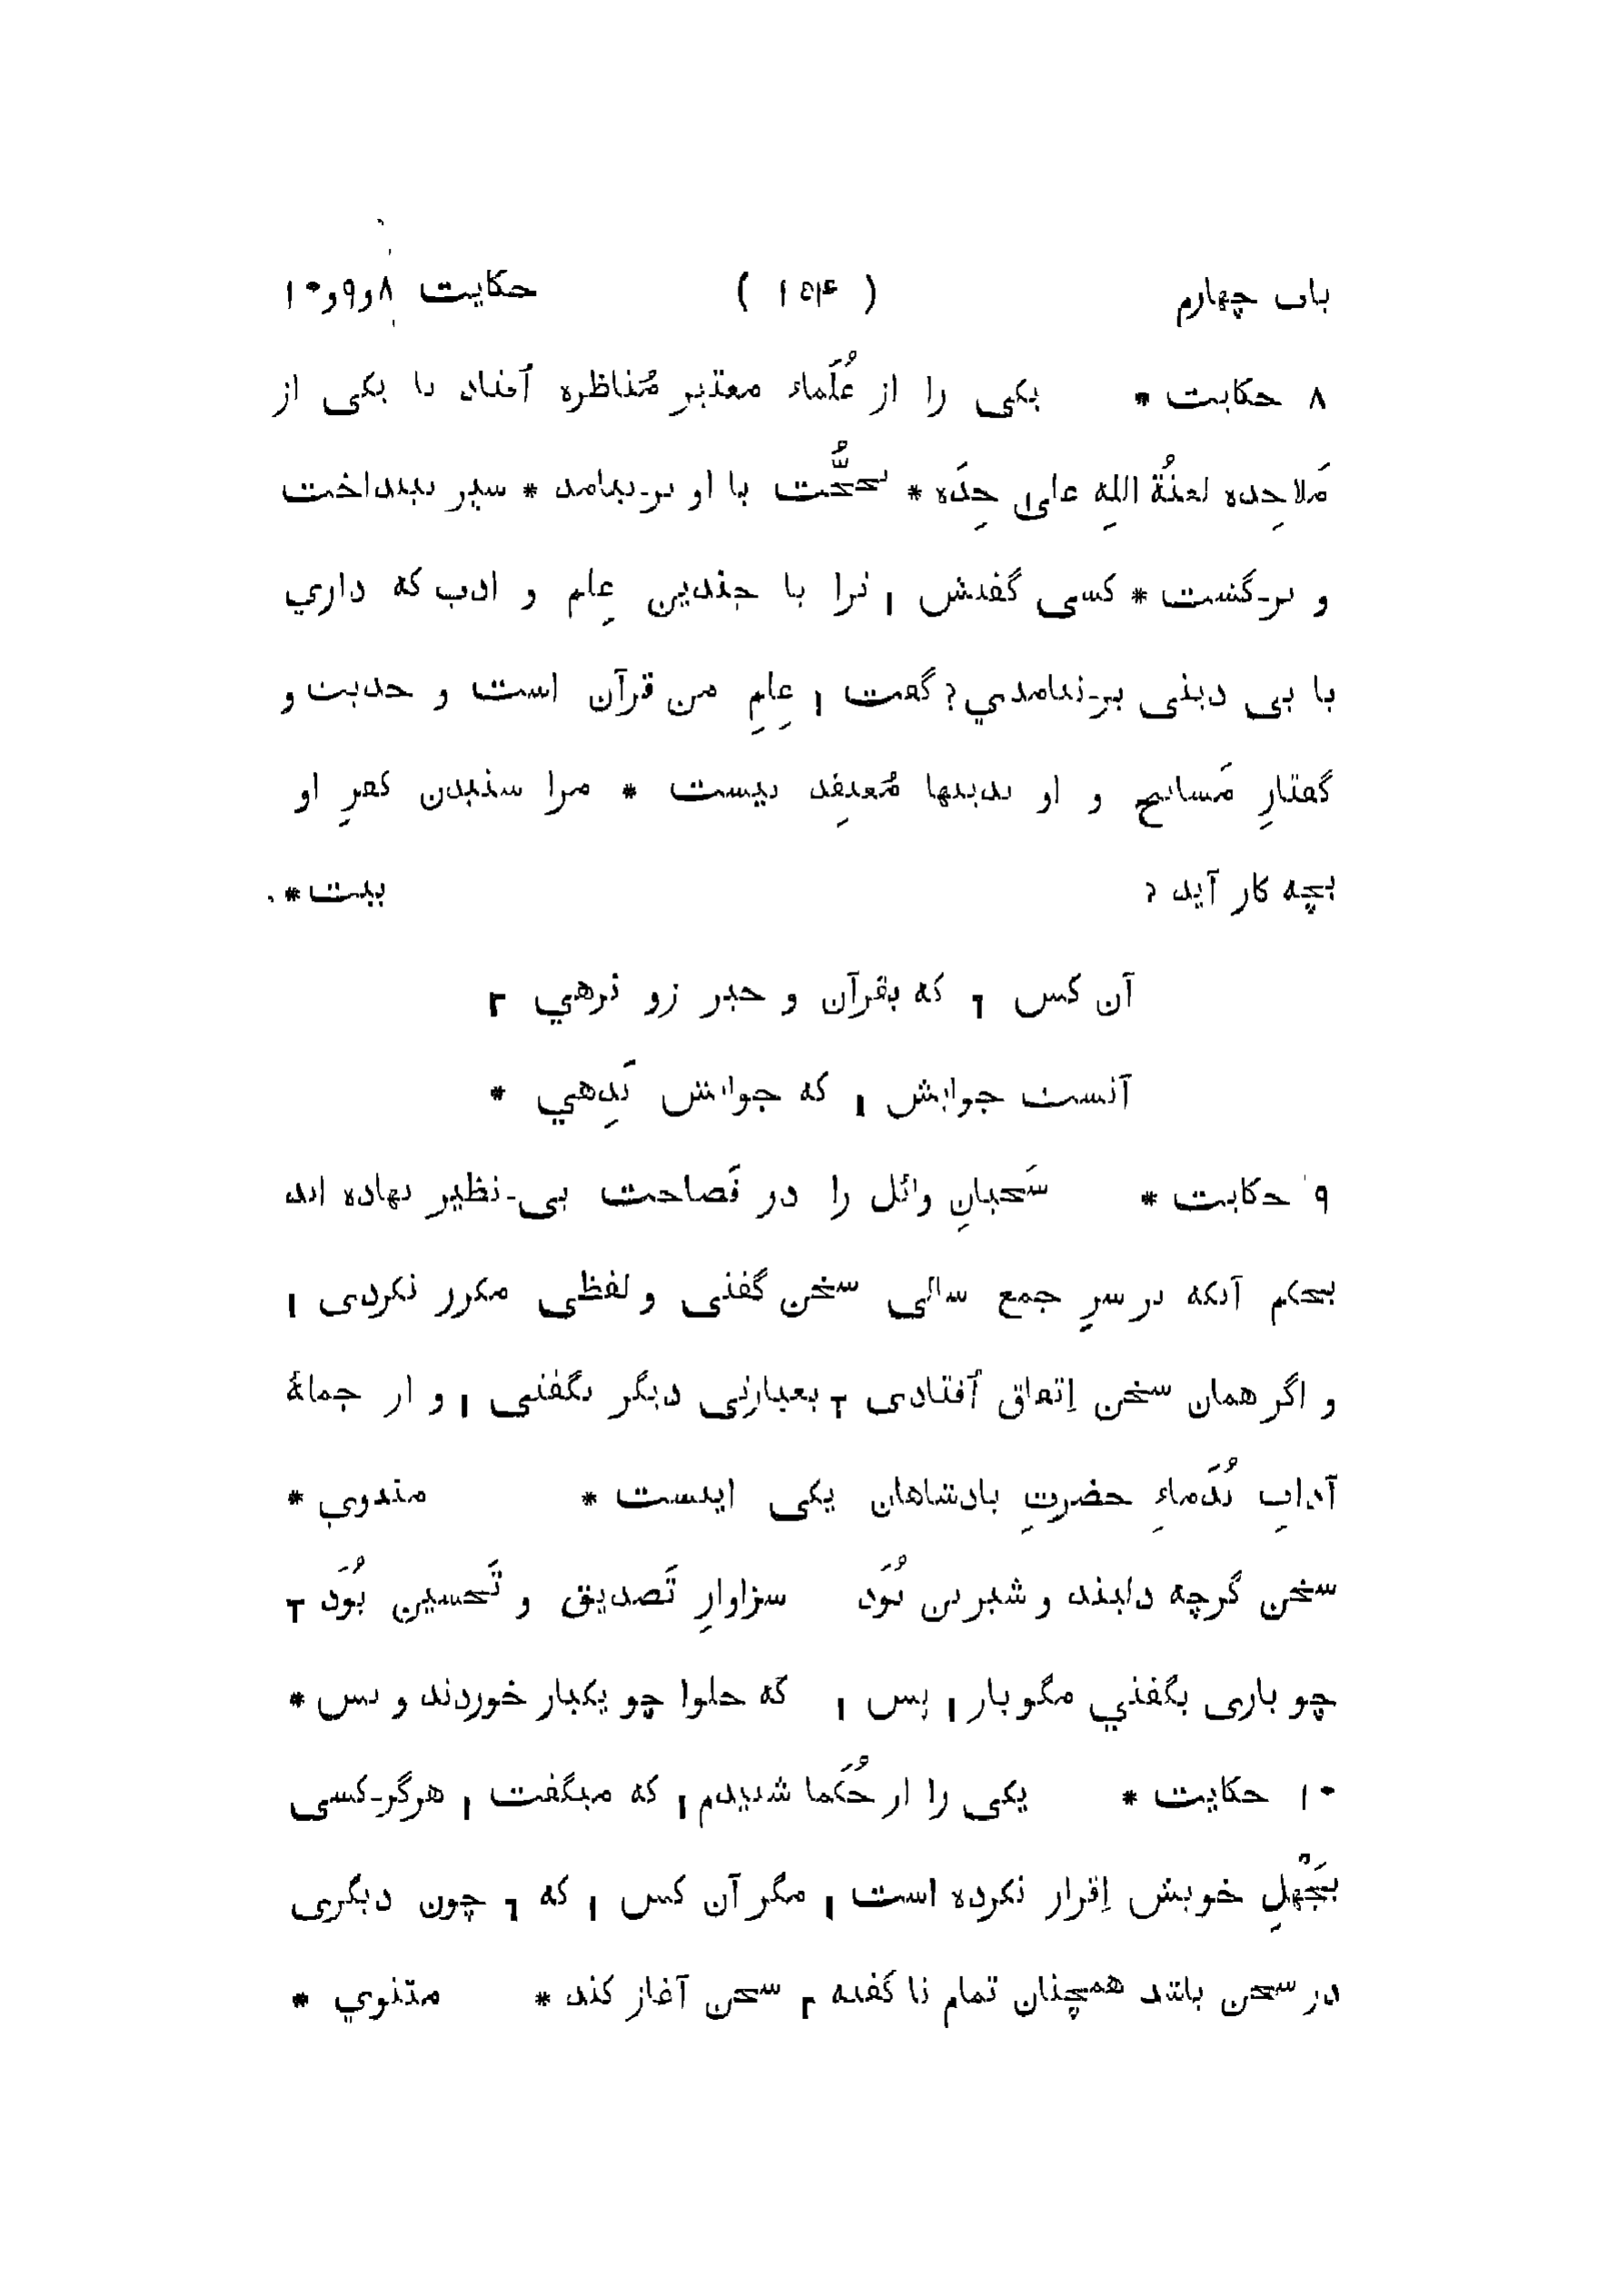 باب چهارم ( ۱۵۴ ) حکایت ۸و۹و۱۰
۸ حکایت * یکی را از عُلَماء معتبر مُناظره اُفتاد با یکی از
مَلاحِده لعنةُ اللهِ علی حِدَه * بحجُّت با او بر-نیامد * سپر بینداخت
و بر-گشت * کسی گفتش ۱ ترا با چندین عِلم و ادب که داري
با بی دینی بر-نیامدي ? گفت ۱ عِلمِ من قرآن است و حدیث و
گفتارِ مَشایخ و او بدینها مُعتقِد نیست * مرا شنیدن کفرِ او
بچه کار آید ? بیت *
آن کس ٦ که بقرآن و خبر زو نرهي ۲
آنست جوابش ۱ که جوابش نَدِهي *
۹ حکایت * سَحبانِ وائل را در فَصاحت بی-نظیر نهاده اند
بحکم آنکه در سرِ جمع سالی سخن گفتی و لفظی مکرر نکردی ۱
و اگر همان سخن اِتفاق اُفتادی ۲ بعبارتی دیگر بگفتی ۱ و از جملهٔ
آدابِ نُدَماءِ حضرتِ پادشاهان یکی اینست * مثنوي *
سخن گرچه دلبند و شیرین بُوَد سزاوارِ تَصدیق و تَحسین بُوَد ۲
چو باری بگفتي مگو باز ۱ پس ۱ که حلوا چو یکبار خوردند و بس *
۱۰ حکایت * یکی را از حُکَما شنیدم ۱ که میگفت ۱ هرگز-کسی
بجَهْلِ خویش اِقرار نکرده است ۱ مگر آن کس ۱ که ٦ چون دیگری
در سخن باشد همچنان تمام نا گفته ۲ سخن آغاز کند * مثنوي *